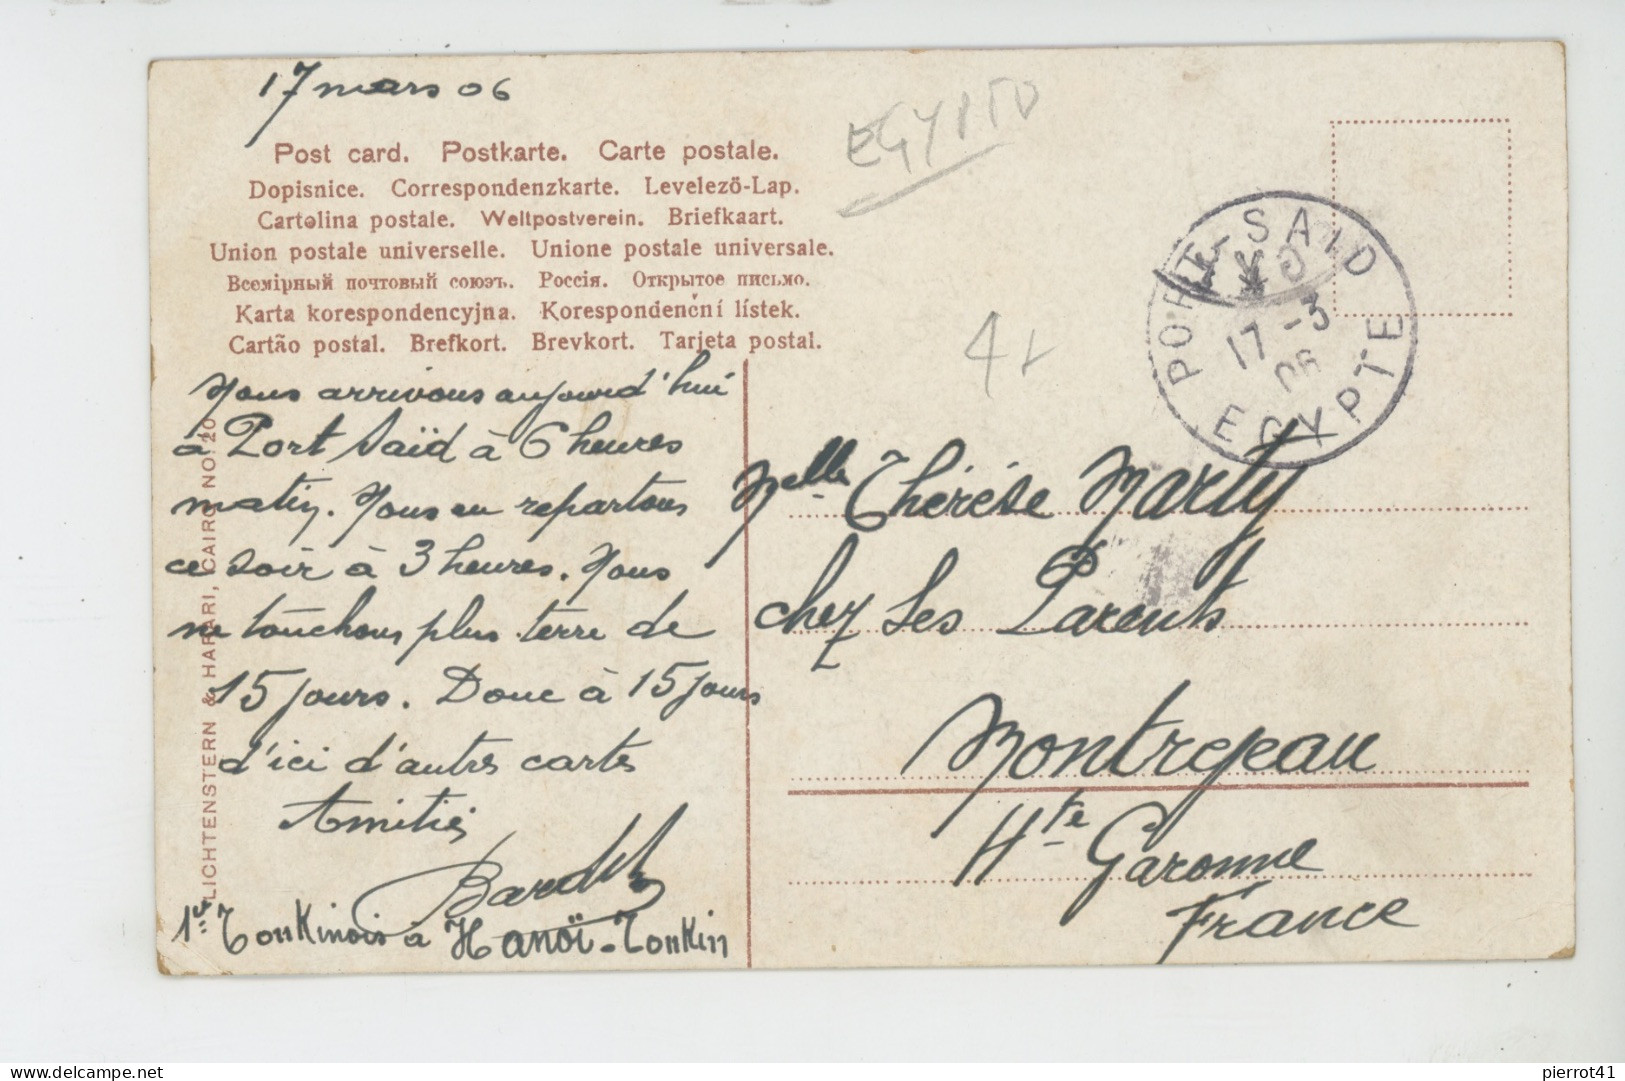 17 mars 06
EGYPTO
Post card. Postkarte. Carte postale.
Dopisnice. Correspondenzkarte. Levelező-Lap.
Cartolina postale. Weltpostverein. Briefkaart.
Union postale universelle. Unione postale universale.
Всемірный почтовый союзъ. Россія. Открытое письмо.
Karta korespondencyjna. Korespondenční lístek.
Cartão postal. Brefkort. Brevkort. Tarjeta postal.
PORT-SAID
17-3
06
EGYPTE
Nous arrivons aujourd'hui
à Port Saïd à 6 heures
matin. Nous en repartons
ce soir à 3 heures. Nous
ne touchons plus terre de
15 jours. Donc à 15 jours
d'ici d'autres cartes
Amitiés
1er Tonkinois à Hanoï-Tonkin
LICHTENSTERN & HARARI, CAIRO. NO. 20
Melle Thérèse Marty
chez Ses Parents
Montrejeau
Hte Garonne
France
delcampe.net
pierrot41